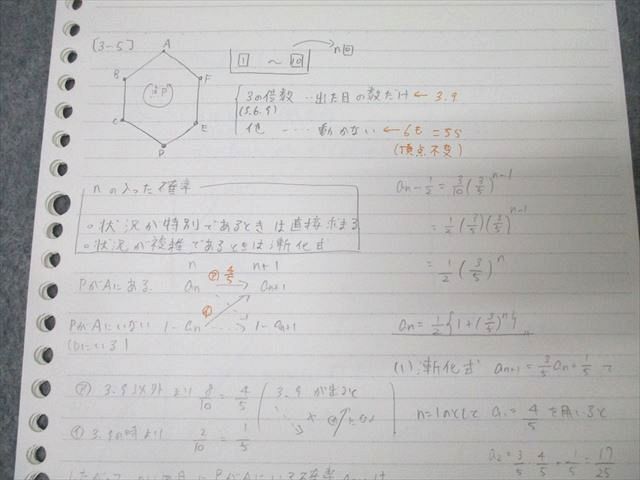 [3-5]
A
B
F
C
E
D
P
1 ～ 10
n回
3の倍数 … 出た目の数だけ ← 3.9
(3.6.9)
他 …… 動かない ← 6も = 55
(頂点不変)
nの入った確率
○状況が特別であるときは直接求まる
○状況が複雑であるときは漸化式
n n+1
PがAにある an ㋐ 4/5 an+1
PがAにいない 1-an ㋑ 1-an+1
(Dにいる)
㋐ 3.9以外より 8/10 = 4/5
㋑ 3.9の時より 2/10 = 1/5
3.9が出ると
an - 1/2 = 3/10 (3/5)^n-1
= 1/2 (3/5)(3/5)^n-1
= 1/2 (3/5)^n
an = 1/2 {1 + (3/5)^n}
(1) 漸化式 an+1 = 3/5 an + 1/5 で
n=1として a1 = 4/5 を用いると
a2 = 3/5 · 4/5 + 1/5 = 17/25